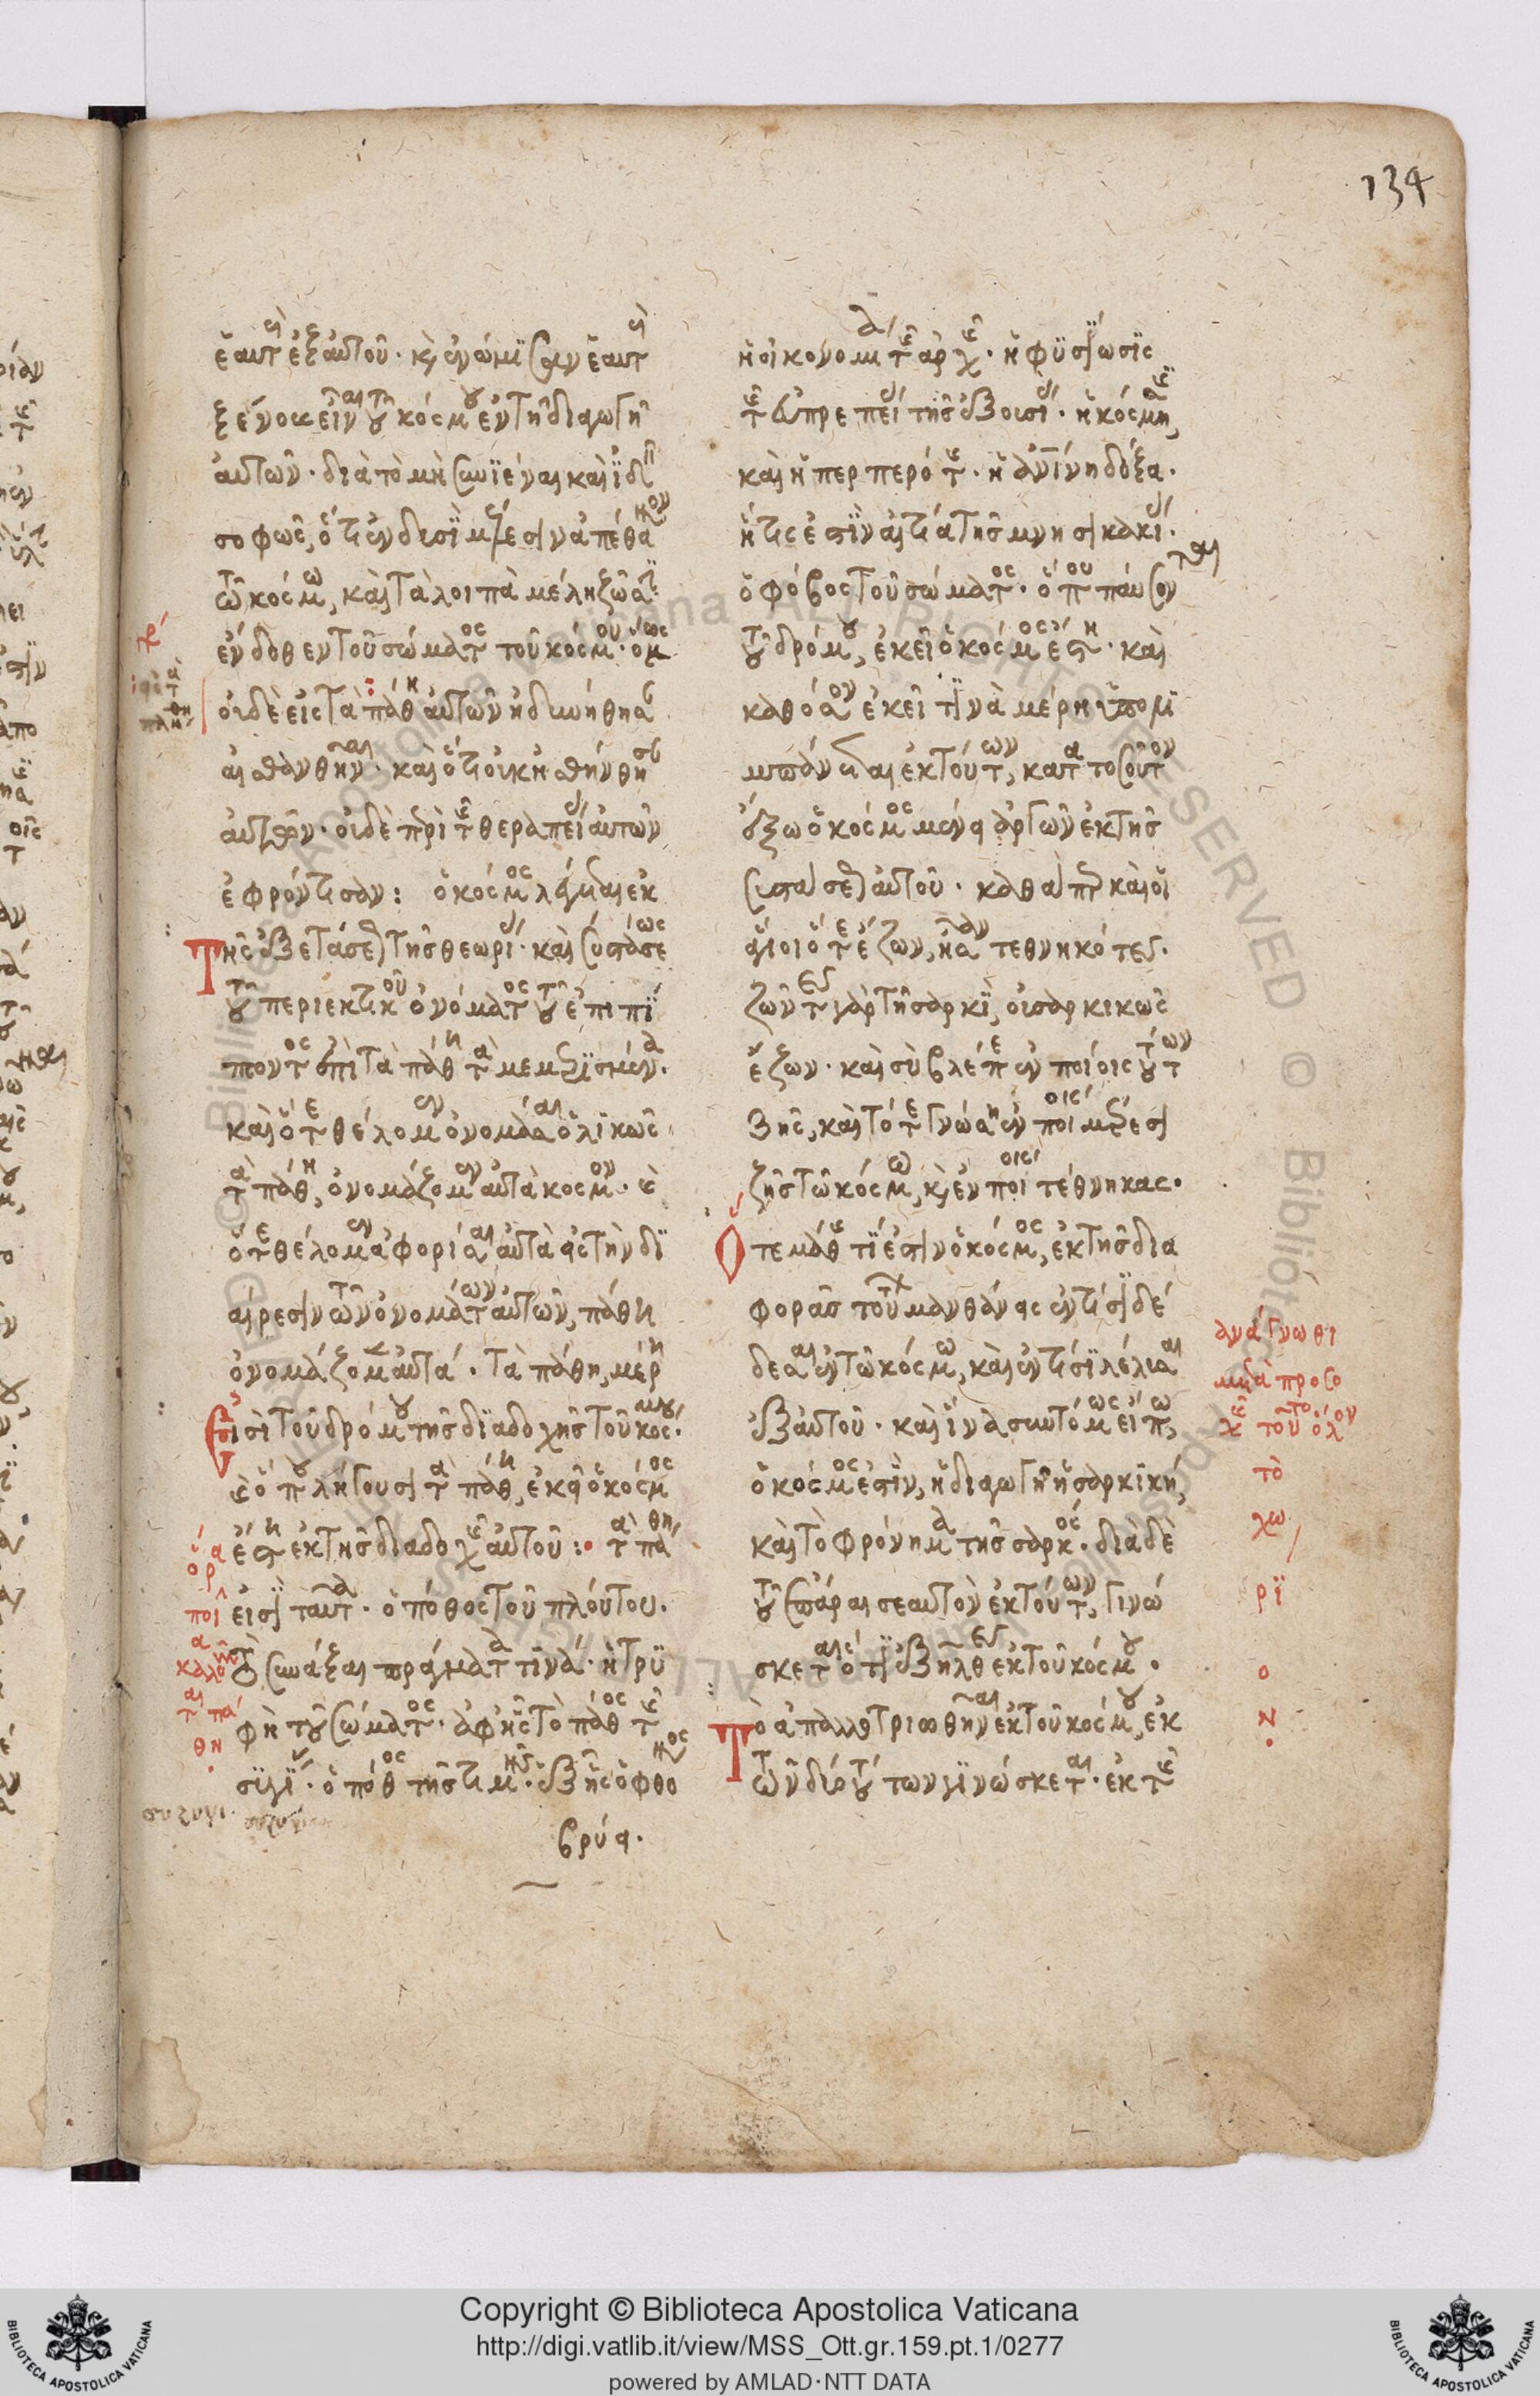 134
ἑαυτοὺς ἐξ αὐτοῦ· καὶ ἐνώμϊσαν ἑαυτοὺς
ξένους εἶναι τοῦ κόσμου ἐν τῇ διαγωγῇ
αὐτῶν· διὰ τὸ μὴ συνϊέναι καὶ ϊδεῖν
σοφῶς, ὅτι ἐν δυσὶ μέρεσιν ἀπέθανον
τῷ κόσμῳ, καὶ τὰ λοιπὰ μέλη ζῶσι
ἔνδοθεν τοῦ σώματος τοῦ κόσμου· ὅμως
οὐδὲ εἰς τὰ πάθη αὐτῶν ἠδυνήθησαν
αἰσθανθῆναι· καὶ ὅτι οὐκ ᾐσθήνθησαν
αὐτῶν· οὐδὲ περὶ τῆς θεραπείας αὐτῶν
ἐφρόντισαν: ὁ κόσμος λέγεται ἐκ
Τῆς ἐξετάσεως τῆς θεωρίας· καὶ συστάσεως
τοῦ περιεκτικοῦ ὀνόματος τοῦ ἐπιπί
πτοντος ἐπὶ τὰ πάθη τὰ μεμερϊσμένα.
καὶ ὅτε θέλομεν ὀνομάσαι ὁλϊκῶς
τὰ πάθη, ὀνομάζομεν αὐτὰ κόσμον· καὶ
ὅτε θέλομεν ἀφορίσαι αὐτὰ εἰς τὴν δϊ
αίρεσιν τῶν ὀνομάτων αὐτῶν, πάθη
ὀνομάζομεν αὐτά. Τὰ πάθη, μέρη
Εἰσὶ τοῦ δρόμου τῆς δϊαδοχῆς τοῦ κόσμου.
καὶ ὅπου λήγουσι τὰ πάθη, ἐκεῖ ὁ κόσμος
ἔστη ἐκ τῆς διαδοχῆς αὐτοῦ: τὰ πάθη
εἰσὶ ταῦτα· ὁ πόθος τοῦ πλούτου.
τὸ συνάξαι πράγματα τϊνά· ἡ τρϋ
φὴ τοῦ σώματος· ἀφ' ἧς τὸ πάθος τῆς
ὁ πόθος τῆς τιμῆς· ἐξ ἧς ὁ φθόνος
βρύει.
ὅρα
ποῖα
καλοῦνται
πάθη
ἡ οἰκονομία τῆς ἀρχῆς· ἡ φϋσίωσϊς
τῆς εὐπρεπείας τῆς ἐξουσίας· ἡ κόσμησις,
καὶ ἡ περπερότης· ἡ ἀνίνη δόξα.
ἥτις ἐστϊν αἰτία τῆς μνησικακίας.
ὁ φόβος τοῦ σώματος· ὅπου παύσονται
τοῦ δρόμου, ἐκεῖ ὁ κόσμος ἔστη· καὶ
καθόσον ἐκεῖ τϊνὰ μέρη ὑπολϊ
μπάνεται ἐκ τούτων, κατὰ τοσοῦτον
ἔξω ὁ κόσμος μένει ἀργῶν ἐκ τῆς
συστάσεως αὐτοῦ· καθάπερ καὶ οἱ
ἅγιοι ὅτε ἔζων, ἦσαν τεθνηκότες.
ζῶντες γὰρ τῇ σαρκϊ, οὐ σαρκικῶς
ἔζων· καὶ σὺ βλέπε ἐν ποίοις τούτων
ζῇς, καὶ τότε γνώσῃ ἐν ποίοις μέρεσι
ζῇς τῷ κόσμῳ, καὶ ἐν ποίοις τέθνηκας.
Ὅτε μάθῃς τϊ ἐστιν ὁ κόσμος, ἐκ τῆς δια
φορᾶς τούτων μανθάνεις ἐν τίσϊ δέ
δεσαι ἐν τῷ κόσμῳ, καὶ ἐν τίσϊ λέλυσαι
ἐξ αὐτοῦ· καὶ ἵνα συντόμως εἴπω,
ὁ κόσμος ἐστϊν, ἡ διαγωγὴ ἡ σαρκϊκὴ,
καὶ τὸ φρόνημα τῆς σαρκός· διὰ δὲ
τοῦ ἐπᾶραι σεαυτὸν ἐκ τούτων, γινώ
σκεται ὅτϊ ἐξῆλθες ἐκ τοῦ κόσμου.
Τὸ ἀπαλλοτριωθῆναι ἐκ τοῦ κόσμου, ἐκ
τῶν δύο τούτων γϊνώσκεται· ἐκ τῆς
ἀνάγνωθι
μετὰ προσο
χῆς τοῦτο ὅλον
τὸ
χω
ρϊ
ο
ν
Copyright © Biblioteca Apostolica Vaticana
http://digi.vatlib.it/view/MSS_Ott.gr.159.pt.1/0277
powered by AMLAD·NTT DATA